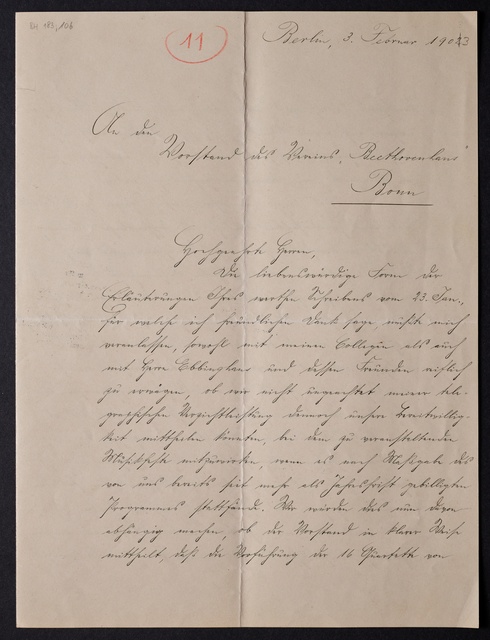 11
Berlin, 3. Februar 1903
An den
Vorstand des Vereins „Beethovenhaus"
Bonn
Hochgeehrte Herren,
Die liebenswürdige Form der
Erläuterungen Ihres werthen Schreibens vom 23. Jan.,
für welche ich freundlichen Dank sage mich
veranlassen, sowohl mit meinen Collegen als auch
mit Herrn Ebbinghaus und dessen Freunden reiflich
zu erwägen, ob wir nicht ungeachtet meiner tele-
graphischen Verzichtleistung dennoch unsere Bereitwillig-
keit mittheilen könnten, bei dem zu veranstaltenden
Musikfeste mitzuwirken, wenn es nach Maßgabe des
von uns bereits seit mehr als Jahresfrist gebilligten
Programmes stattfände. Wir würden das nun davon
abhängig machen, ob der Vorstand in klarer Weise
mittheilt, daß die Vorführung der 16 Quartette von